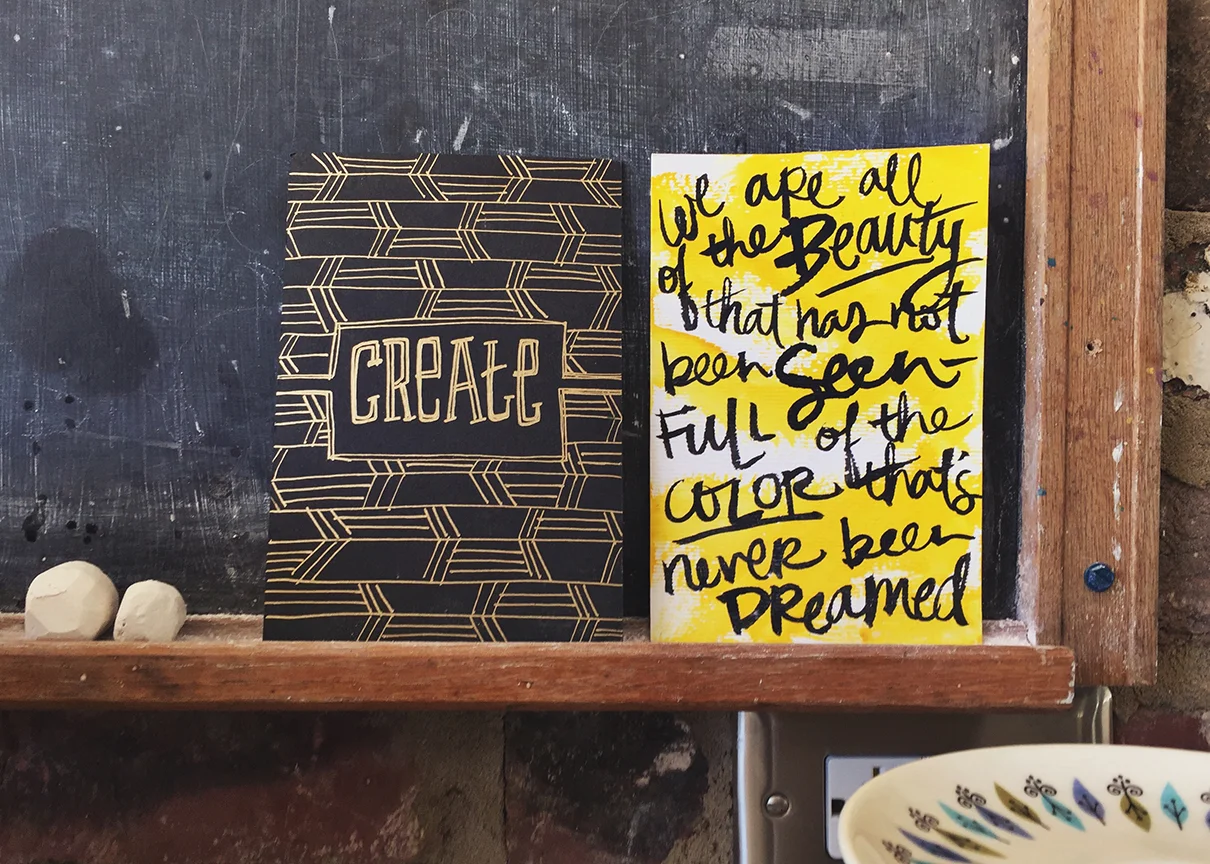 CREAtE
we are all
of the Beauty
that has not
been Seen-
FULL of the
COLOR that's
never been
DReamed